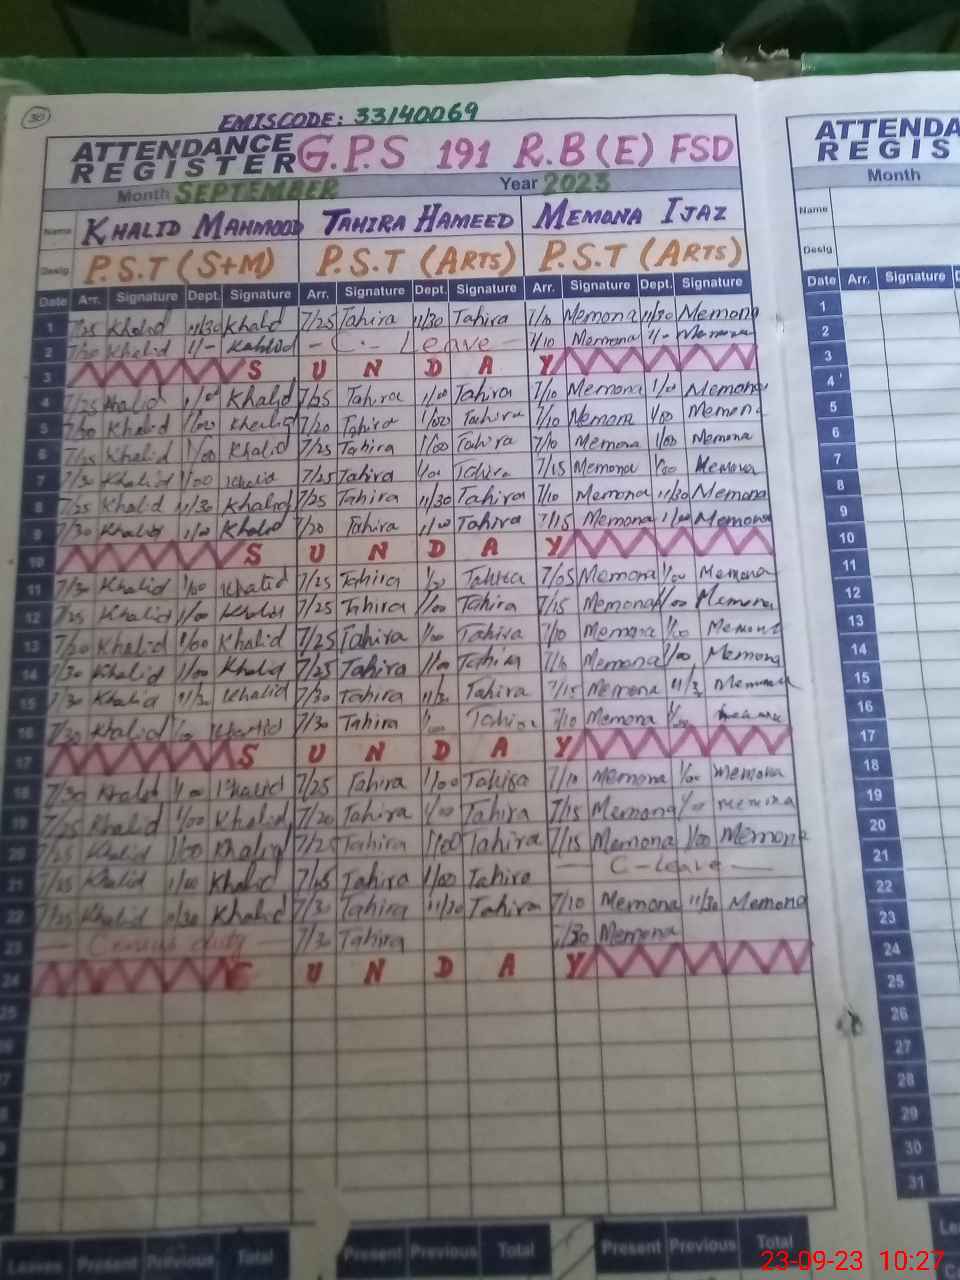 30
EMISCODE: 33140069
ATTENDANCE REGISTER G.P.S 191 R.B (E) FSD
Month SEPTEMBER Year 2023
Name KHALID MAHMOOD TAHIRA HAMEED MEMONA IJAZ
Desig. P.S.T (S+M) P.S.T (ARTS) P.S.T (ARTS)
Date Arr. Signature Dept. Signature Arr. Signature Dept. Signature Arr. Signature Dept. Signature
1 7/25 Khalid 11/30 Khalid 7/25 Tahira 11/30 Tahira 7/10 Memona 11/30 Memona
2 Khalid 1/- C. Leave 7/10 Memona 1/- Memona
3 S U N D A Y
4 7/25 Khalid Khalid 7/25 Tahira 1/00 Tahira 7/10 Memona Memona
5 Khalid 1/00 7/20 Tahira 1/00 Tahira 7/10 Memona 1/00 Memona
6 7/25 Khalid 1/00 Khalid 7/25 Tahira 1/00 Tahira 7/10 Memona 1/00 Memona
7 7/30 Khalid 1/00 Khalid 7/25 Tahira Tahira 7/15 Memona 1/00 Memona
8 7/25 Khalid 11/30 Khalid 7/25 Tahira 11/30 Tahira 7/10 Memona 11/30 Memona
9 7/30 Khalid Khalid 7/20 Tahira 1/00 Tahira 7/15 Memona 1/00 Memona
10 S U N D A Y
11 7/30 Khalid 1/00 Khalid 7/25 Tahira Tahira 7/05 Memona 1/00 Memona
12 7/25 Khalid 1/00 Khalid 7/25 Tahira 1/00 Tahira 7/15 Memona 1/00 Memona
13 7/20 Khalid 1/00 Khalid 7/25 Tahira 1/00 Tahira 7/10 Memona 1/00 Memona
14 7/30 Khalid 1/00 Khalid 7/25 Tahira 1/00 Tahira Memona 1/00 Memona
15 7/30 Khalid 11/30 Khalid 7/30 Tahira Tahira 7/15 Memona Memona
16 7/30 Khalid 7/30 Tahira Tahira 7/10 Memona
17 S U N D A Y
18 7/30 Khalid Khalid 7/25 Tahira 1/00 Tahira 7/10 Memona 1/00 Memona
19 7/25 Khalid 1/00 Khalid 7/20 Tahira 1/00 Tahira 7/15 Memona Memona
20 7/25 Khalid 1/00 Khalid 7/25 Tahira 1/00 Tahira 7/15 Memona 1/00 Memona
21 Khalid 1/00 Khalid Tahira 1/00 Tahira C-Leave
22 Khalid 11/30 Khalid 7/30 Tahira 11/30 Tahira 7/10 Memona 11/30 Memona
23 duty 7/30 Tahira 7/30 Memona
24 U N D A Y
25
Leaves Present Previous Total Present Previous Total Present Previous Total
ATTENDA
REGIS
Month
Name
Desig.
Date Arr. Signature
1
2
3
4
5
6
7
8
9
10
11
12
13
14
15
16
17
18
19
20
21
22
23
24
25
26
27
28
29
30
31
23-09-23 10:27